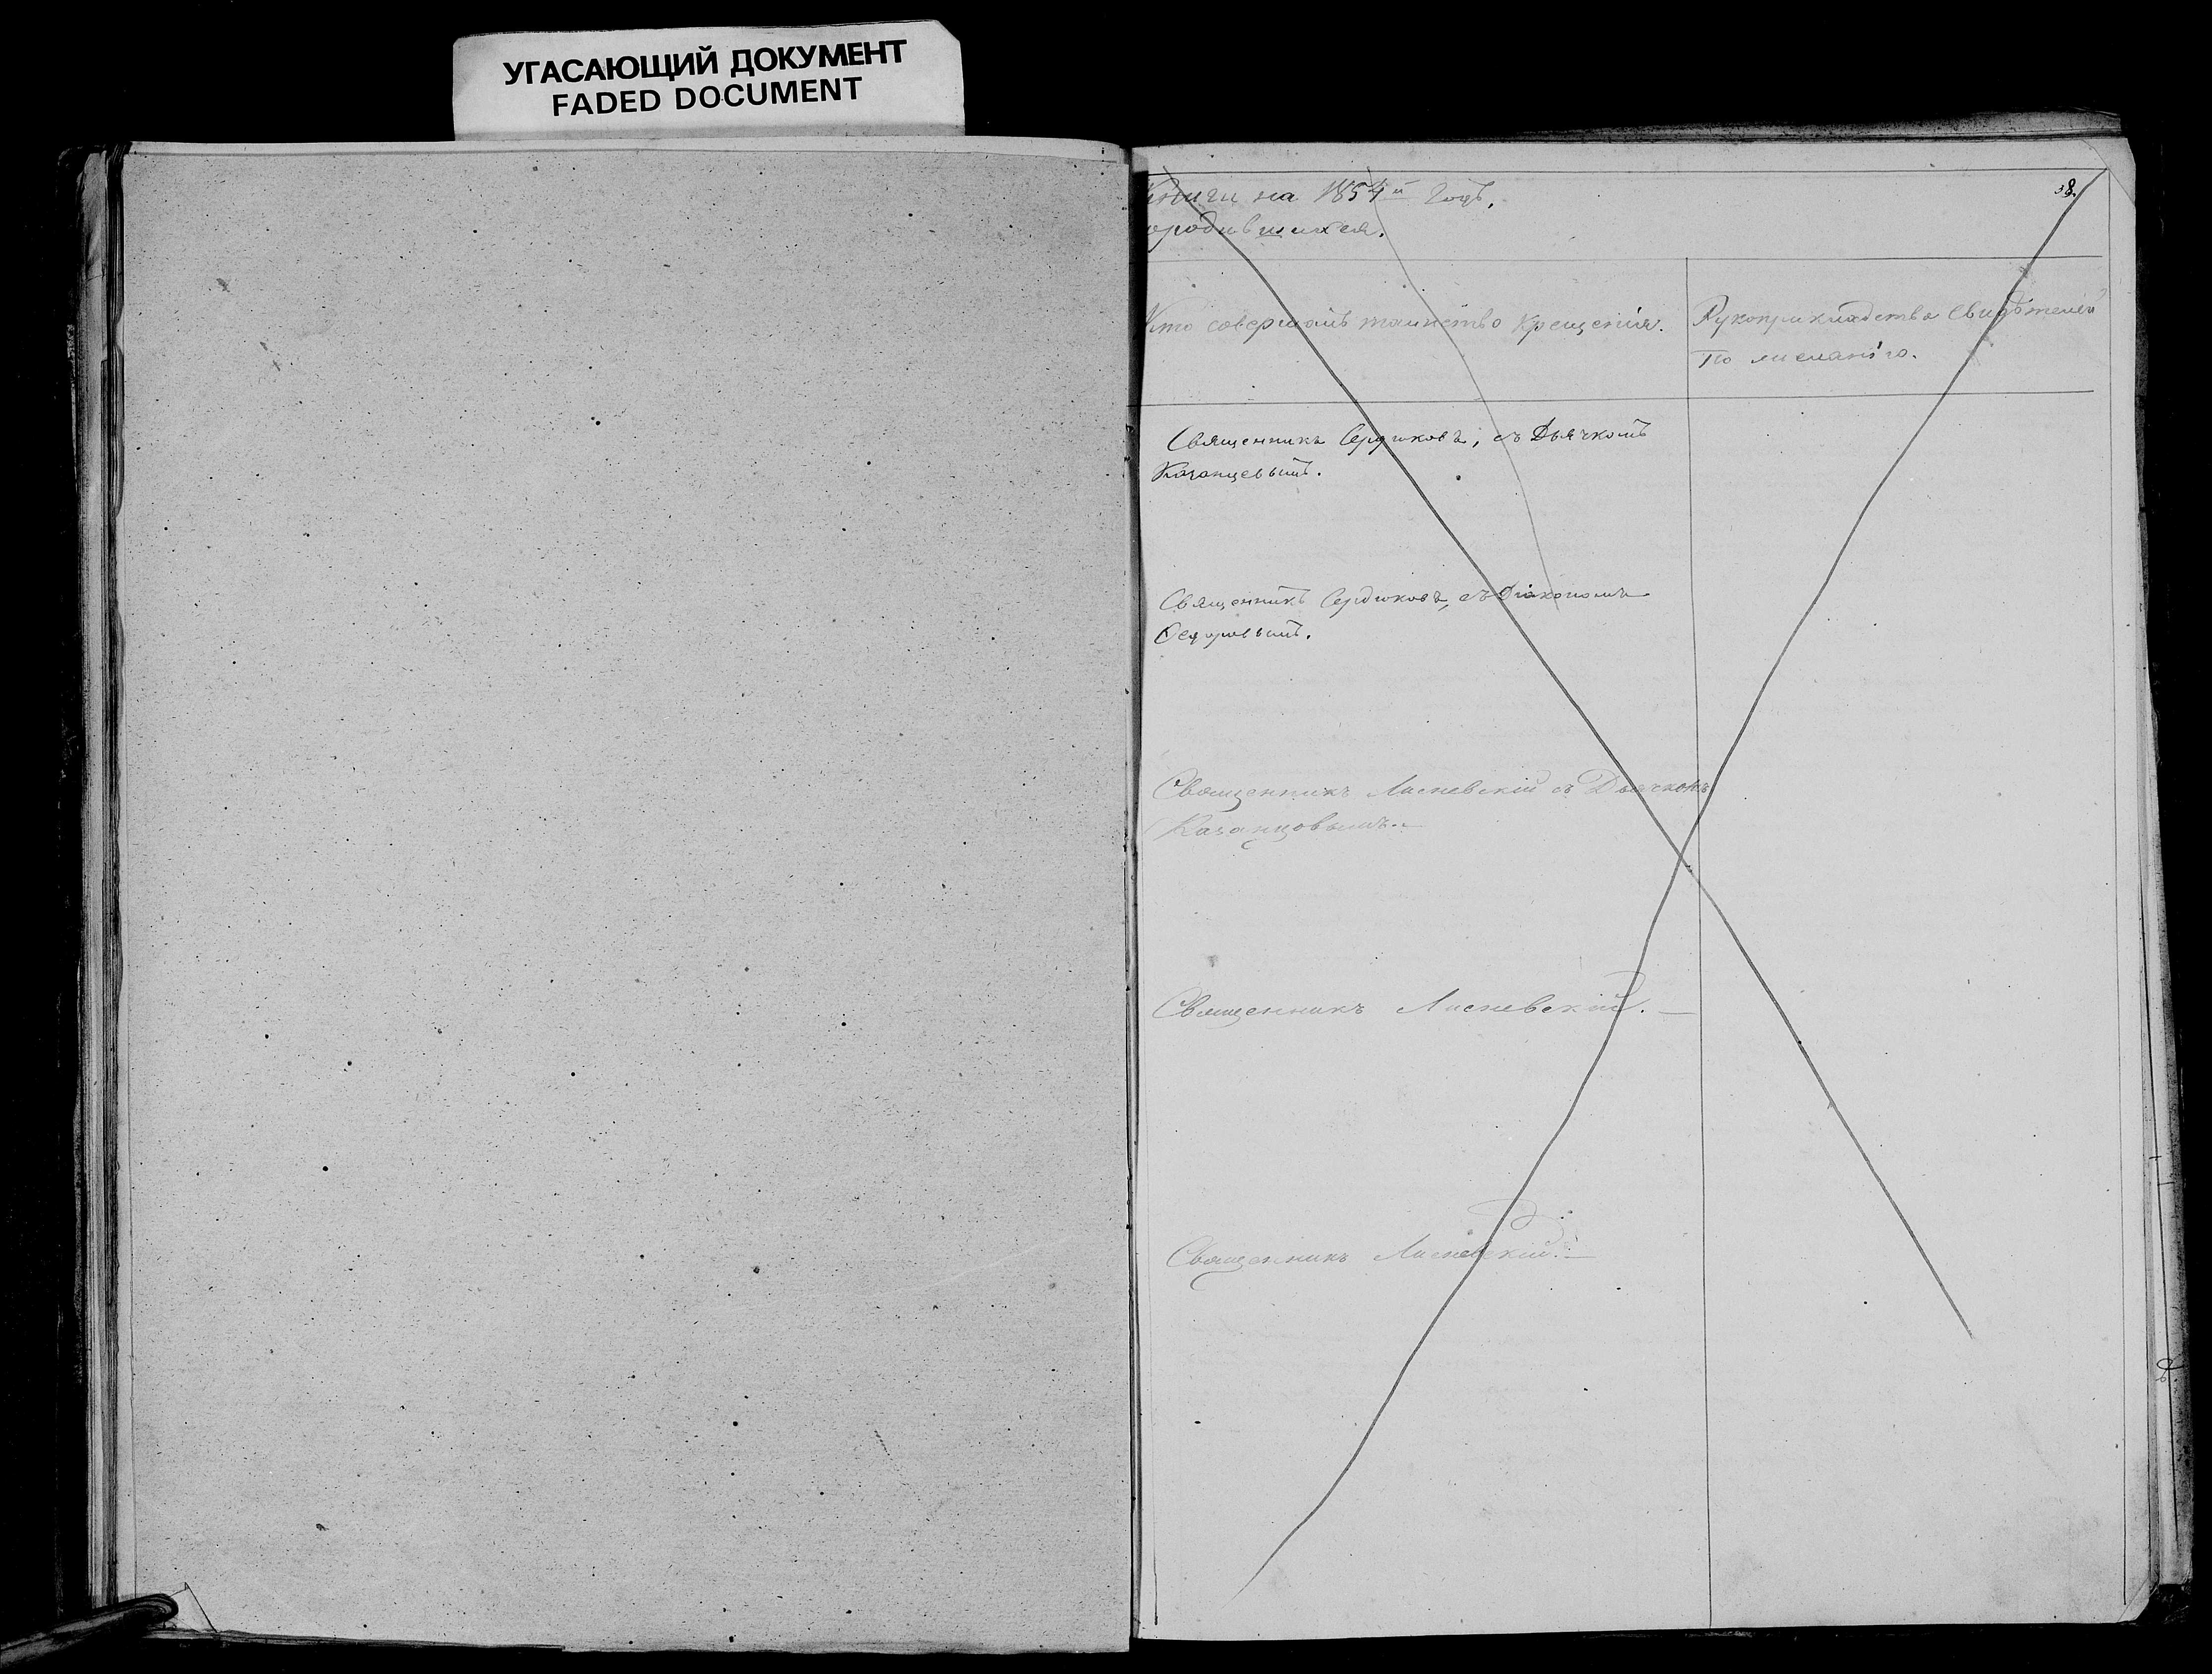 УГАСАЮЩИЙ ДОКУМЕНТ
FADED DOCUMENT
38.
Книги на 1854й Годъ,
ородившихся.
Кто совершалъ таинство Крещенія.
Рукоприкладства Свидѣтелей
по желанію.
Священникъ Сердюковъ, съ Дьячкомъ
Казанцевымъ.
Священникъ Сердюковъ, съ Діакономъ
Федоровымъ.
Священникъ Лисневскій съ Дьячкомъ
Казанцовымъ.
Священникъ Лисневскій.
Священникъ Лисневскій.